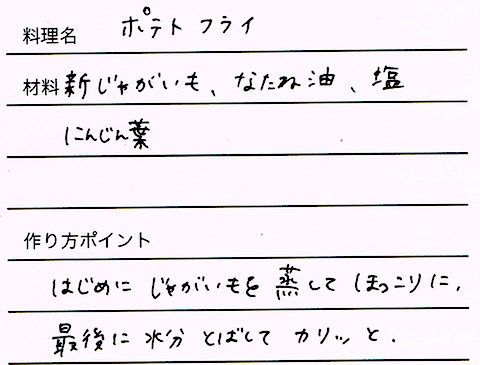 料理名 ポテトフライ
材料 新じゃがいも、なたね油、塩
にんじん葉
作り方ポイント
はじめに じゃがいもを 蒸して ほっこりに、
最後に 水分 とばして カリッと.